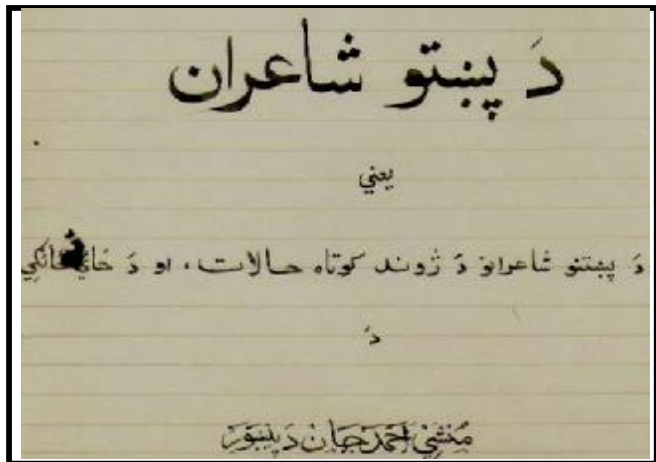 دَ پښتو شاعران
يعني
دَ پښتنو شاعرانو دَ ژوند کوتاه حالات، او دَ ځاي
دَ
مُنشي احمد جان دَ پېښور